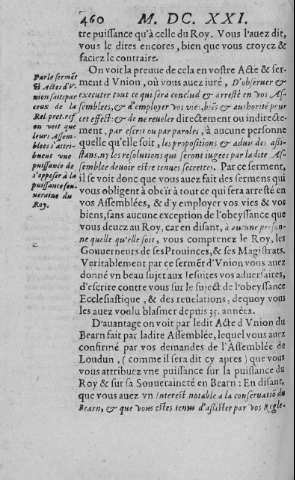 460 M. DC. XXI.
tre puissance qu'à celle du Roy. Vous l'auez dit,
vous le dites encores, bien que vous croyez &
faciez le contraire.
On voit la preuue de cela en vostre Acte & ser-
ment d'Vnion, où vous auez iuré, D'obseruer &
executer tout ce qui sera conclud & arresté en vos As-
semblées, & d'employer vos vies, biẽs & authorité pour
cet effect: & de ne reueler directement ou indirecte-
ment, par escrit ou par paroles, à aucune personne
quelle qu'elle soit, les propositions & aduis des assi-
stans, ny les resolutions qui seront iugees par ladite As-
semblee deuoir estre tenues secrettes. Par ce serment,
il se voit donc que vous auez fait des sermens qui
vous obligent à obeïr à tout ce qui sera arresté en
vos Assemblées, & d'y employer vos vies & vos
biens, sans aucune exception de l'obeyssance que
vous deuez au Roy, car en disant, à aucune person-
ne quelle qu'elle soit, vous comprenez le Roy, les
Gouuerneurs de ses Prouinces, & ses Magistrats.
Veritablement par ce sermẽt d'Vnion vous auez
donné vn beau sujet aux Iesuites vos aduersaires,
d'escrire contre vous sur le subject de l'obeyssance
Ecclesiastique, & des reuelations, dequoy vous
les auez voulu blasmer depuis 35. années.
D'auantage on voit par ledit Acte d'Vnion du
Bearn fait par ladite Assemblée, lequel vous auez
confirmé par vos demandes de l'Assemblée de
Loudun, (comme il sera dit cy apres) que vous
vous attribuez vne puissance sur la puissance du
Roy & sur sa Souueraineté en Bearn: En disant,
que vous auez vn interest notable a la conseruatiõ du
Bearn, & que vous estes tenus d'assister par vos Regle-
Par le sermẽt
& Acte d'V-
nion fait par
ceux de la
Rel. pret. ref
on voit que
leurs Assem-
blées s'attri-
buent vne
puissance de
s'opposer à la
puissance sou-
ueraine du
Roy.